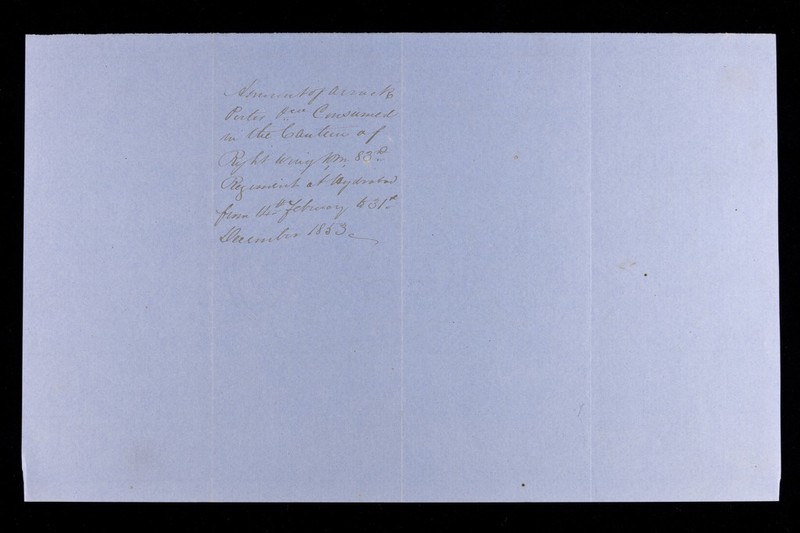 Amount of Arrack
Porter &c Consumed
in the Canteen of
Right Wing HM 83rd
Regiment at Hydrabad
from 11th February to 31st
December 1853